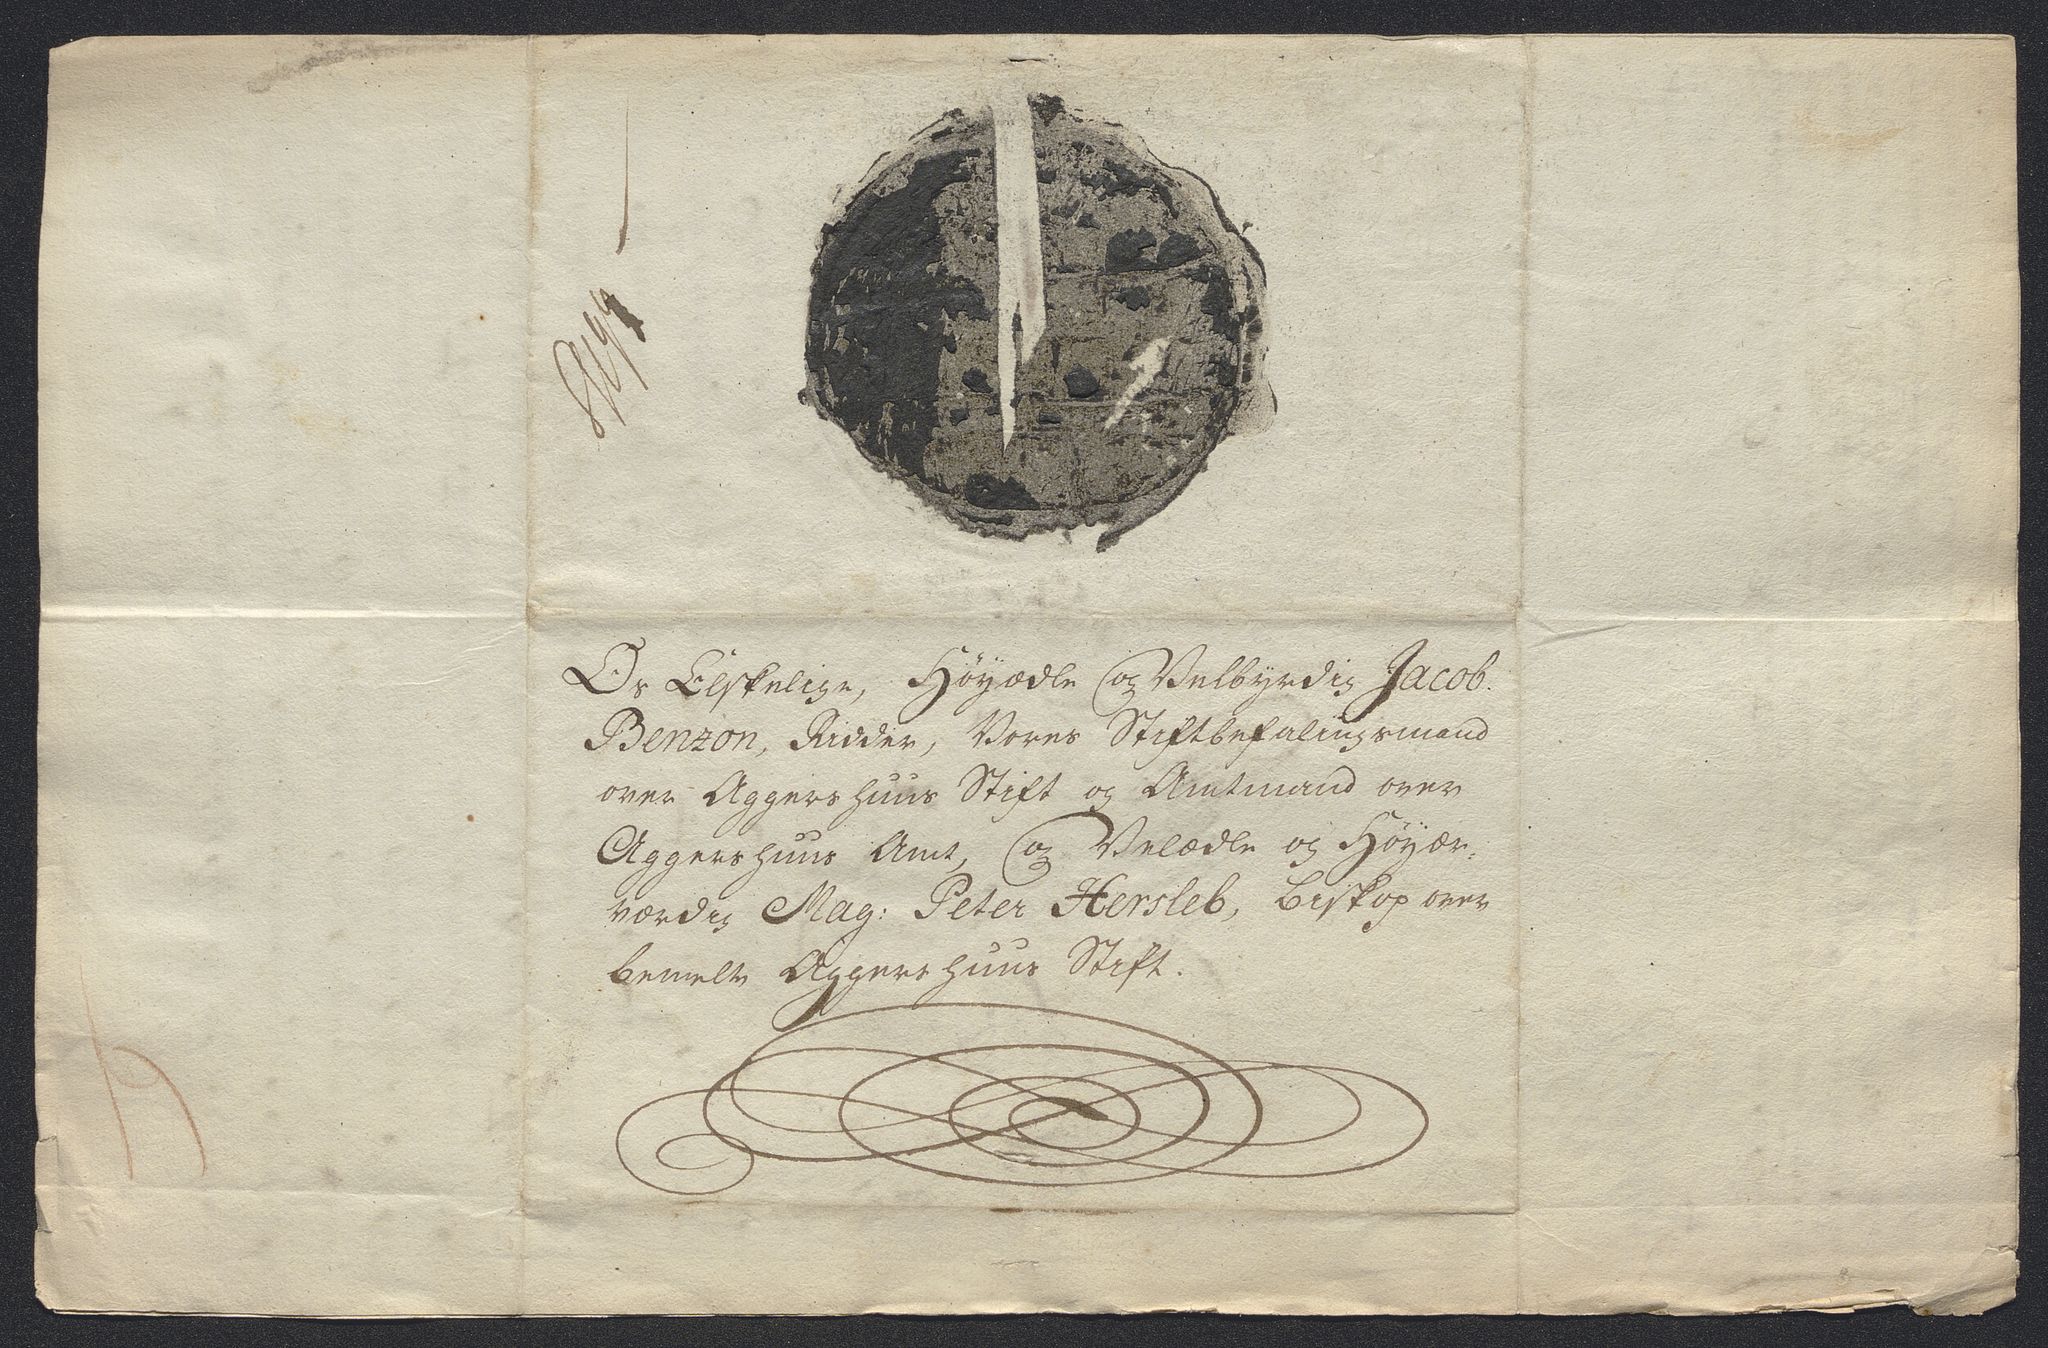 Os Elskelige, Höyædle og Velbyrdig Jacob
Benzon, Ridder, Vores Stiftbefalingsmand
over Aggershuus Stift og Amtmand over
Aggershuus Amt, og Velædle og Höyær-
værdig Mag: Peter Hersleb, Biskop over
bemelte Aggershuus Stift.